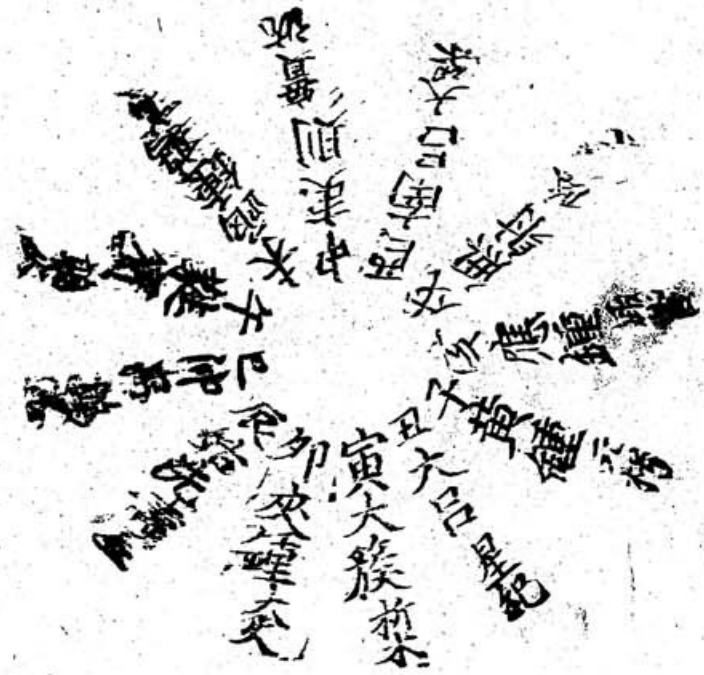 子黃鍾元枵
丑大呂星紀
寅大簇析木
卯夾鍾大火
辰姑洗壽
巳仲呂
午蕤賓
未林鍾鶉
申夷則實沈
酉南呂大梁
戌無射
亥應鍾